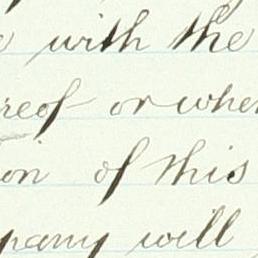 with the
reof or when
on of this
pany will